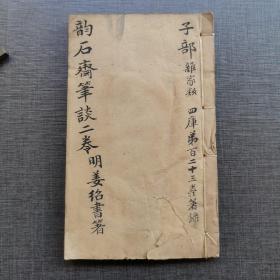 子部 雜家類 四庫第百二十三卷著錄
韵石齋筆談二卷明姜紹書著